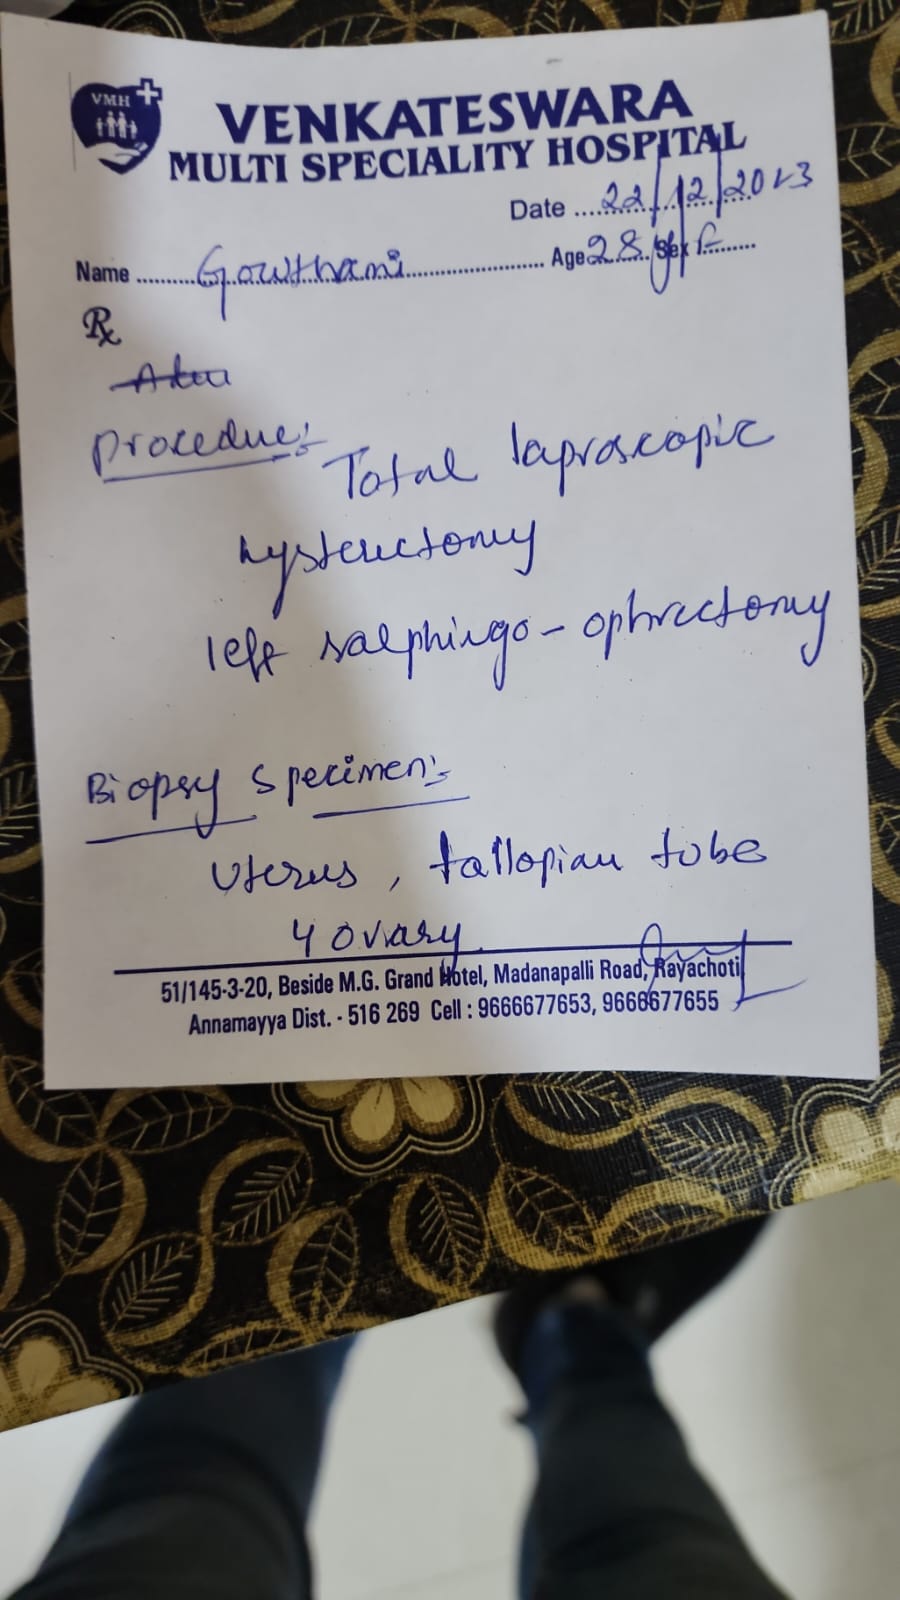 VMH
VENKATESWARA
MULTI SPECIALITY HOSPITAL
Date ....22/12/2023
Name ........Gowthami........................ Age 28 y Sex F........
Rx
Procedue:-
Total laproscopic
hysterectomy
left salphingo - ophrectomy
Biopsy specimen:-
Uterus, fallopian tube
& ovary.
51/145-3-20, Beside M.G. Grand Hotel, Madanapalli Road, Rayachoti
Annamayya Dist. - 516 269 Cell : 9666677653, 9666677655